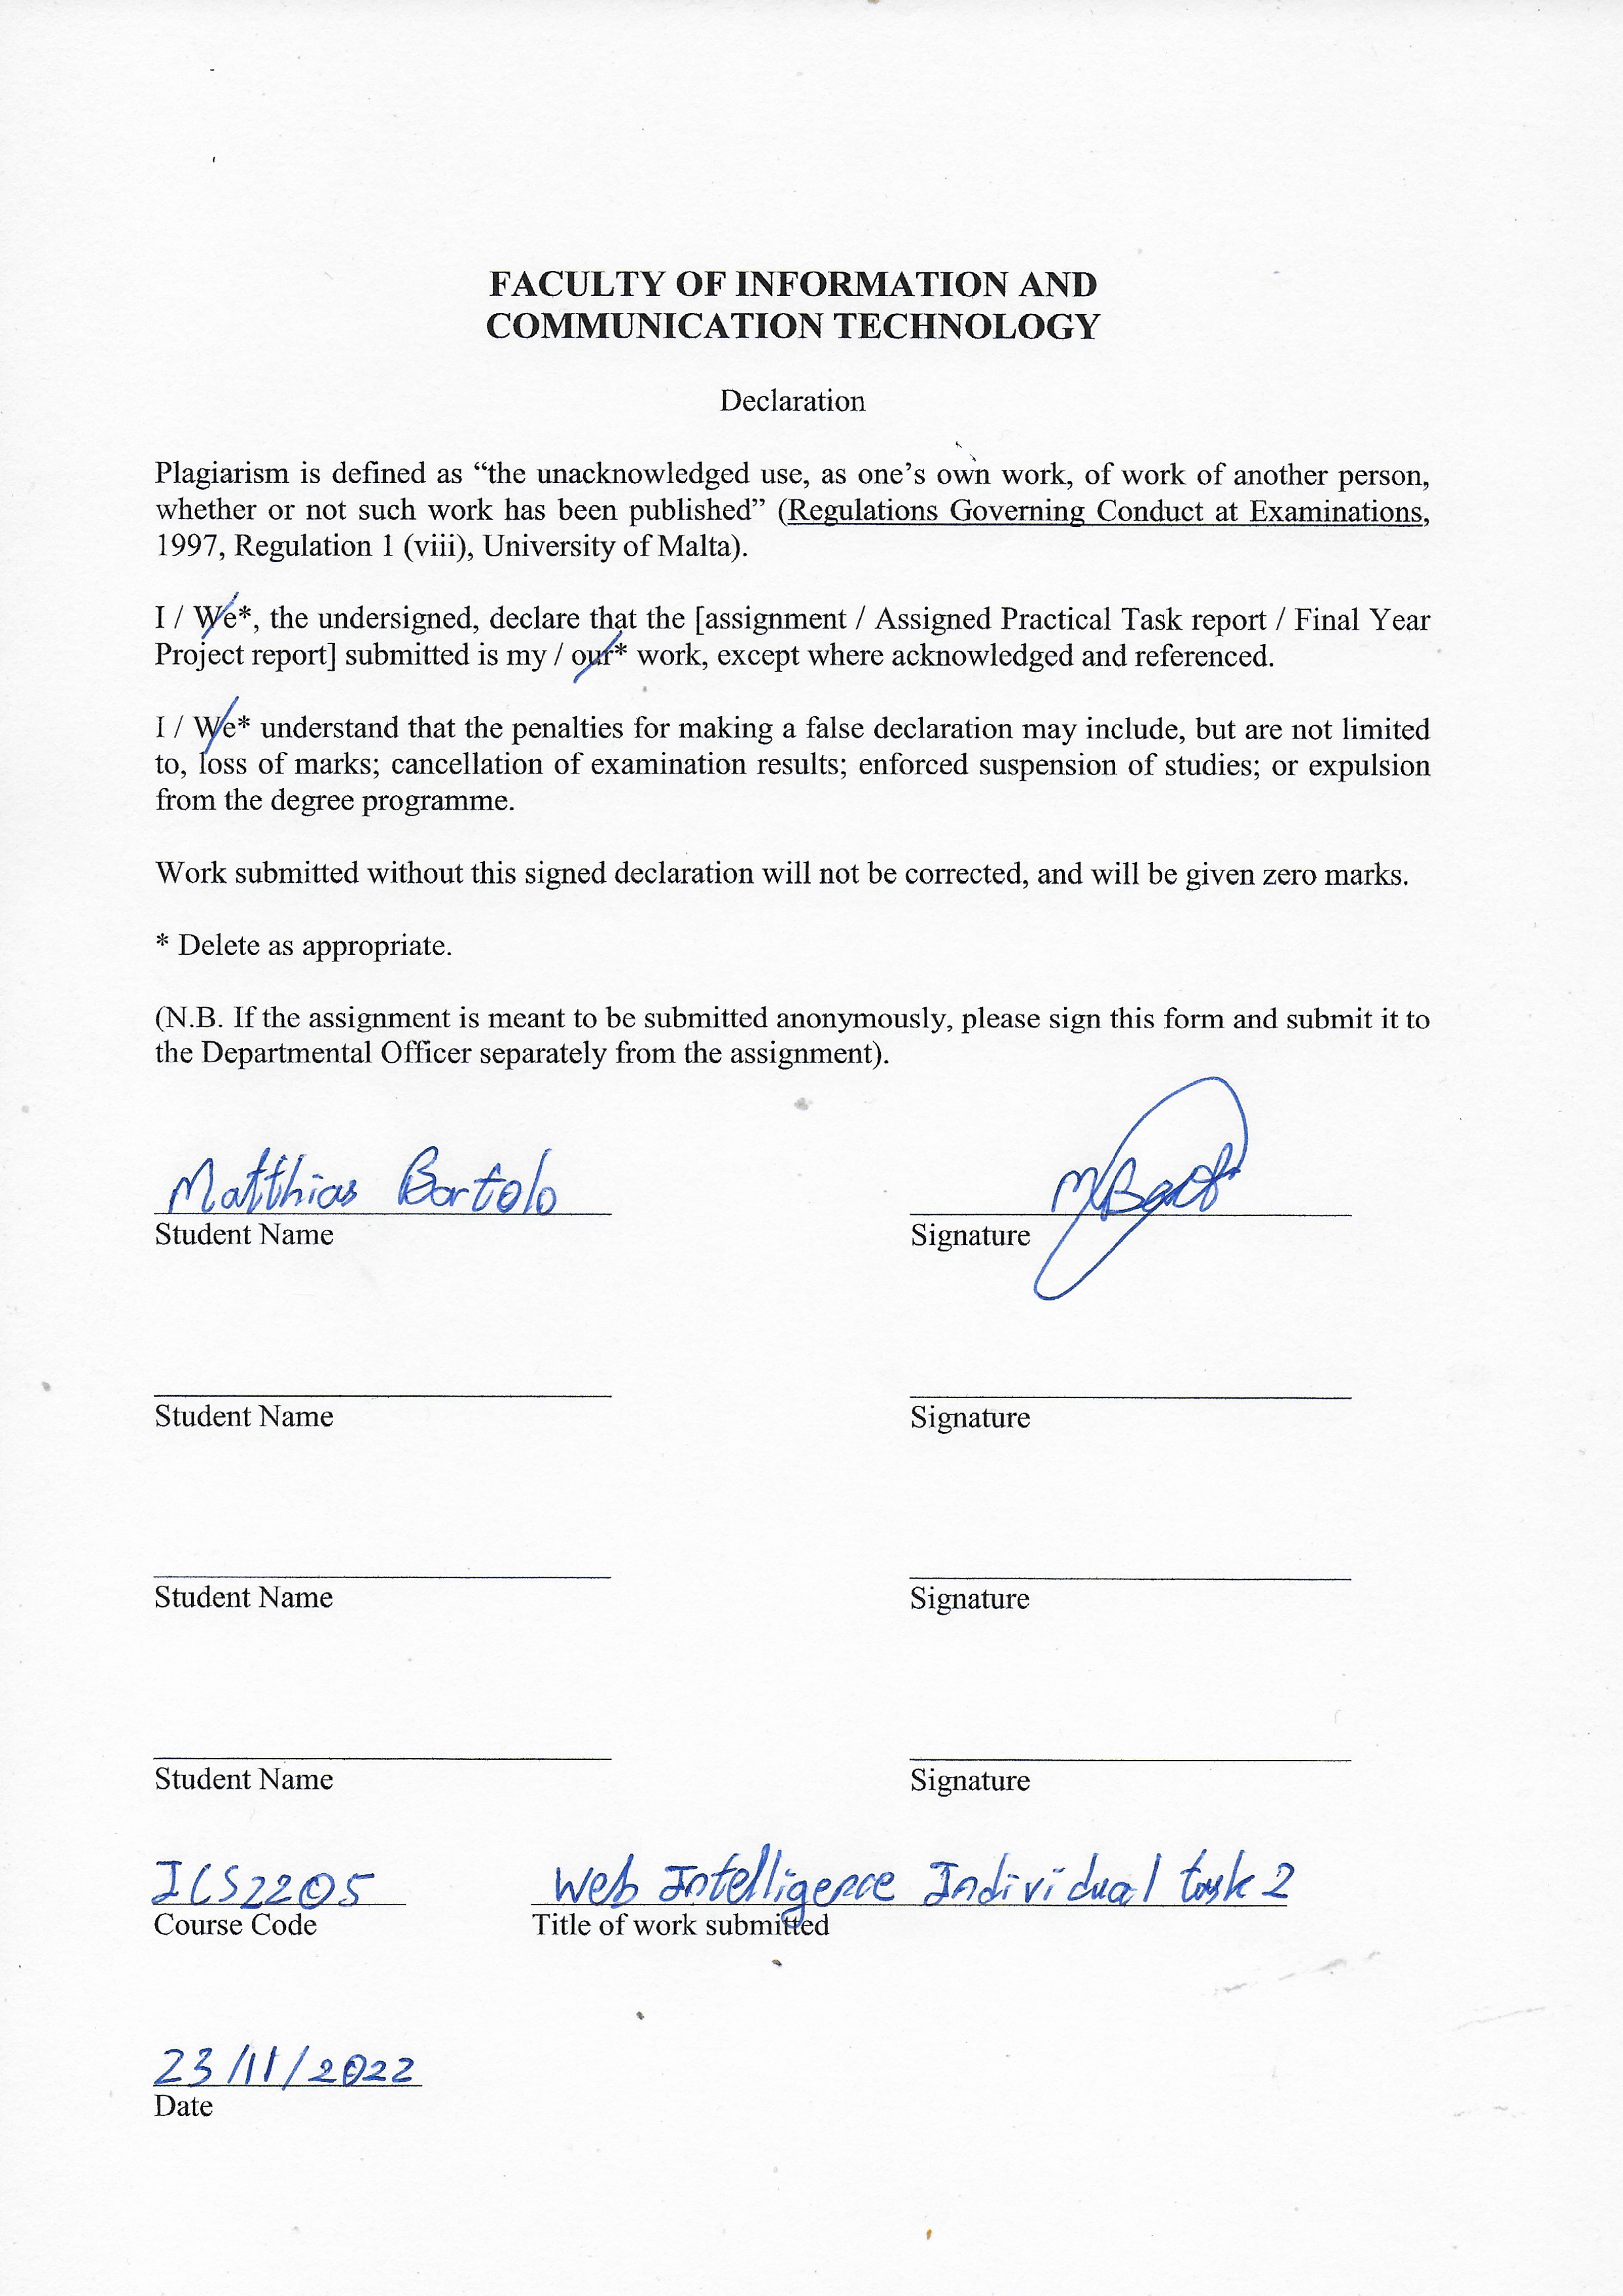 FACULTY OF INFORMATION AND
COMMUNICATION TECHNOLOGY
Declaration
Plagiarism is defined as “the unacknowledged use, as one’s own work, of work of another person,
whether or not such work has been published” (Regulations Governing Conduct at Examinations,
1997, Regulation 1 (viii), University of Malta).
I / We*, the undersigned, declare that the [assignment / Assigned Practical Task report / Final Year
Project report] submitted is my / our* work, except where acknowledged and referenced.
I / We* understand that the penalties for making a false declaration may include, but are not limited
to, loss of marks; cancellation of examination results; enforced suspension of studies; or expulsion
from the degree programme.
Work submitted without this signed declaration will not be corrected, and will be given zero marks.
* Delete as appropriate.
(N.B. If the assignment is meant to be submitted anonymously, please sign this form and submit it to
the Departmental Officer separately from the assignment).
Matthias Bartolo
Student Name Signature
Student Name Signature
Student Name Signature
Student Name Signature
ICS2205 Web Intelligence Individual task 2
Course Code Title of work submitted
23/11/2022
Date